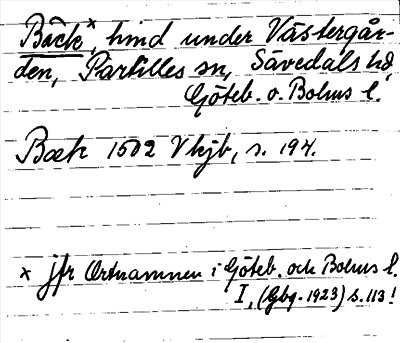 Bäck×, hind under Västergår-
den, Partilles sn, Sävedals hd,
Göteb. o. Bohus l.
Bæk 1502 Vhjb, s. 194.
× jfr Ortnamnen i Göteb. och Bohus l.
I, (Gbg. 1923) s. 113!